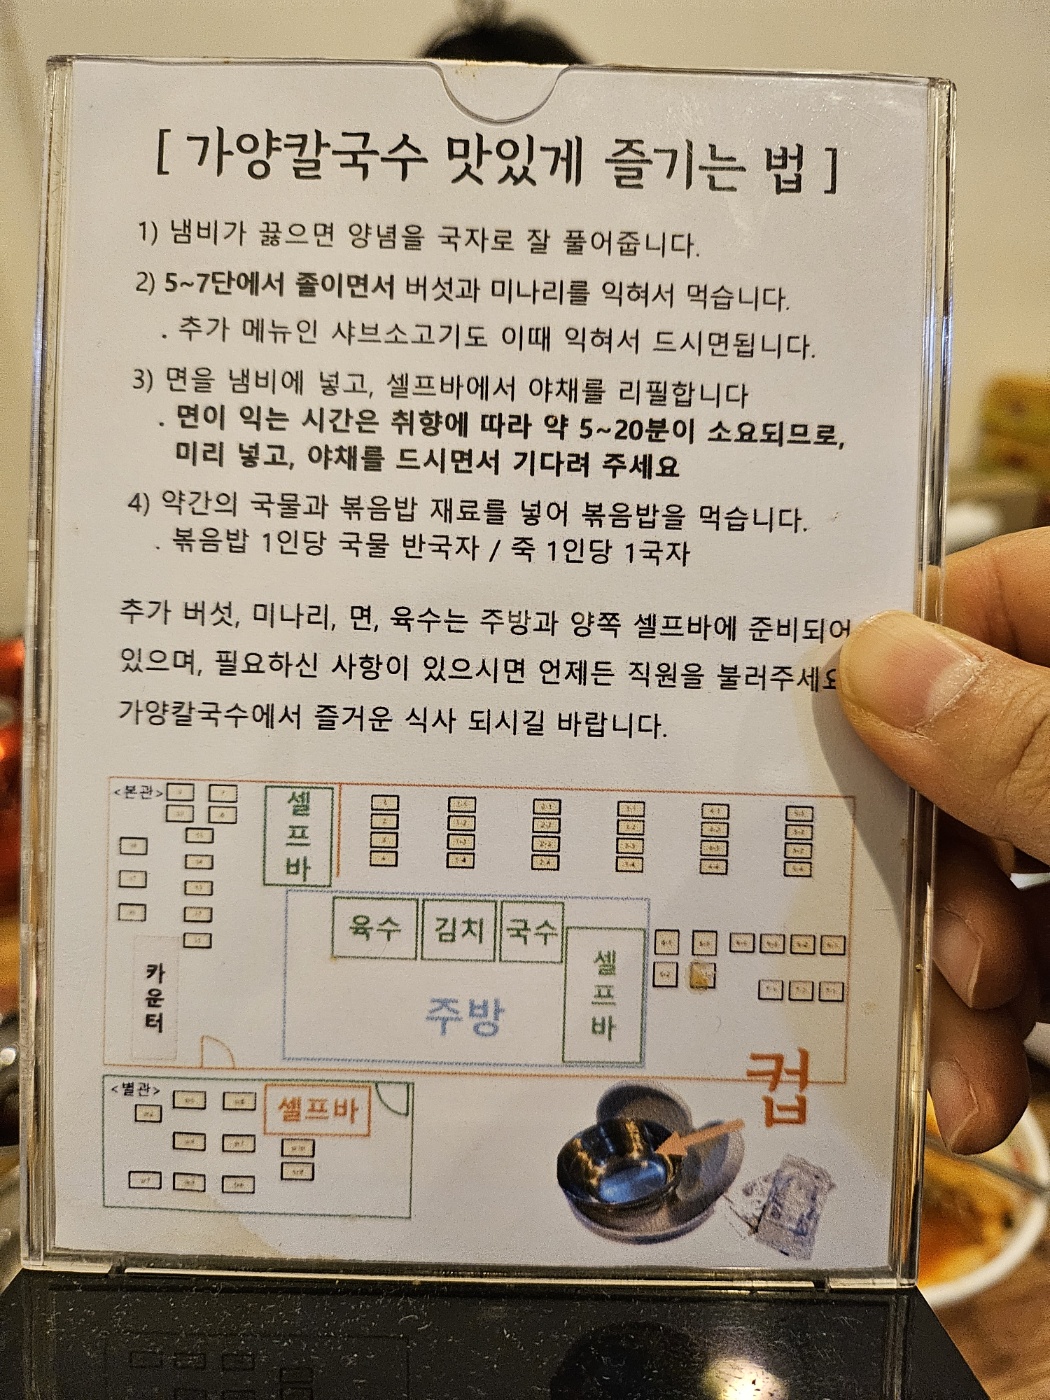 [ 가양칼국수 맛있게 즐기는 법 ]
1) 냄비가 끓으면 양념을 국자로 잘 풀어줍니다.
2) 5~7단에서 졸이면서 버섯과 미나리를 익혀서 먹습니다.
. 추가 메뉴인 샤브소고기도 이때 익혀서 드시면됩니다.
3) 면을 냄비에 넣고, 셀프바에서 야채를 리필합니다
. 면이 익는 시간은 취향에 따라 약 5~20분이 소요되므로,
미리 넣고, 야채를 드시면서 기다려 주세요
4) 약간의 국물과 볶음밥 재료를 넣어 볶음밥을 먹습니다.
. 볶음밥 1인당 국물 반국자 / 죽 1인당 1국자
추가 버섯, 미나리, 면, 육수는 주방과 양쪽 셀프바에 준비되어
있으며, 필요하신 사항이 있으시면 언제든 직원을 불러주세요
가양칼국수에서 즐거운 식사 되시길 바랍니다.
<본관>
셀프바
육수
김치
국수
셀프바
카운터
주방
컵
<별관>
셀프바